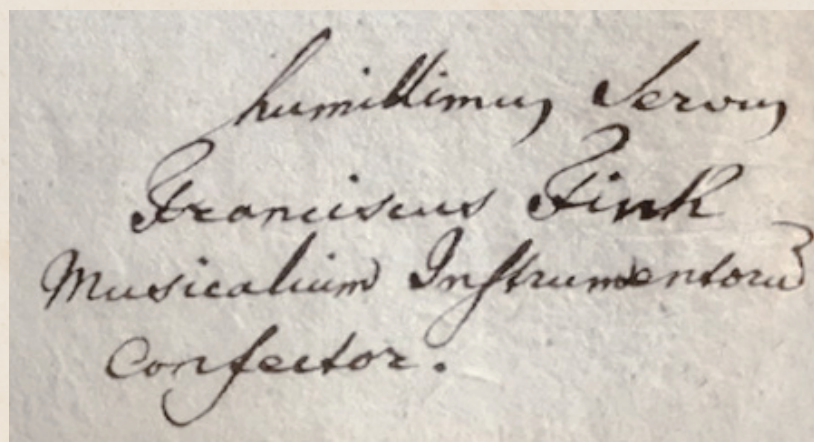 humillimus Servus
Franciscus Fink
Musicalium Instrumentoru
Confector.